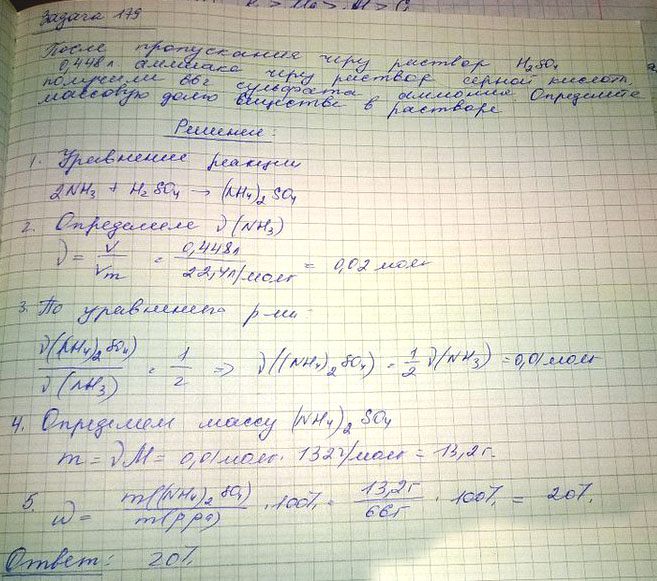 Задача 179
После пропускания через раствор H₂SO₄
0,448л аммиака через раствор серной кислоты
получили 66г сульфата аммония Определите
массовую долю вещества в растворе
Решение:
1. Уравнение реакции
2NH₃ + H₂SO₄ → (NH₄)₂SO₄
2. Определяем ν(NH₃)
ν = V/Vm = 0,448л/22,4л/моль = 0,02 моль
3. По уравнению р-ции
ν((NH₄)₂SO₄)/ν(NH₃) = 1/2 => ν((NH₄)₂SO₄) = 1/2 ν(NH₃) = 0,01 моль
4. Определяем массу (NH₄)₂SO₄
m = νM = 0,01моль · 132г/моль = 13,2г.
5. w = m((NH₄)₂SO₄)/m(р-ра) · 100% = 13,2г/66г · 100% = 20%
Ответ: 20%